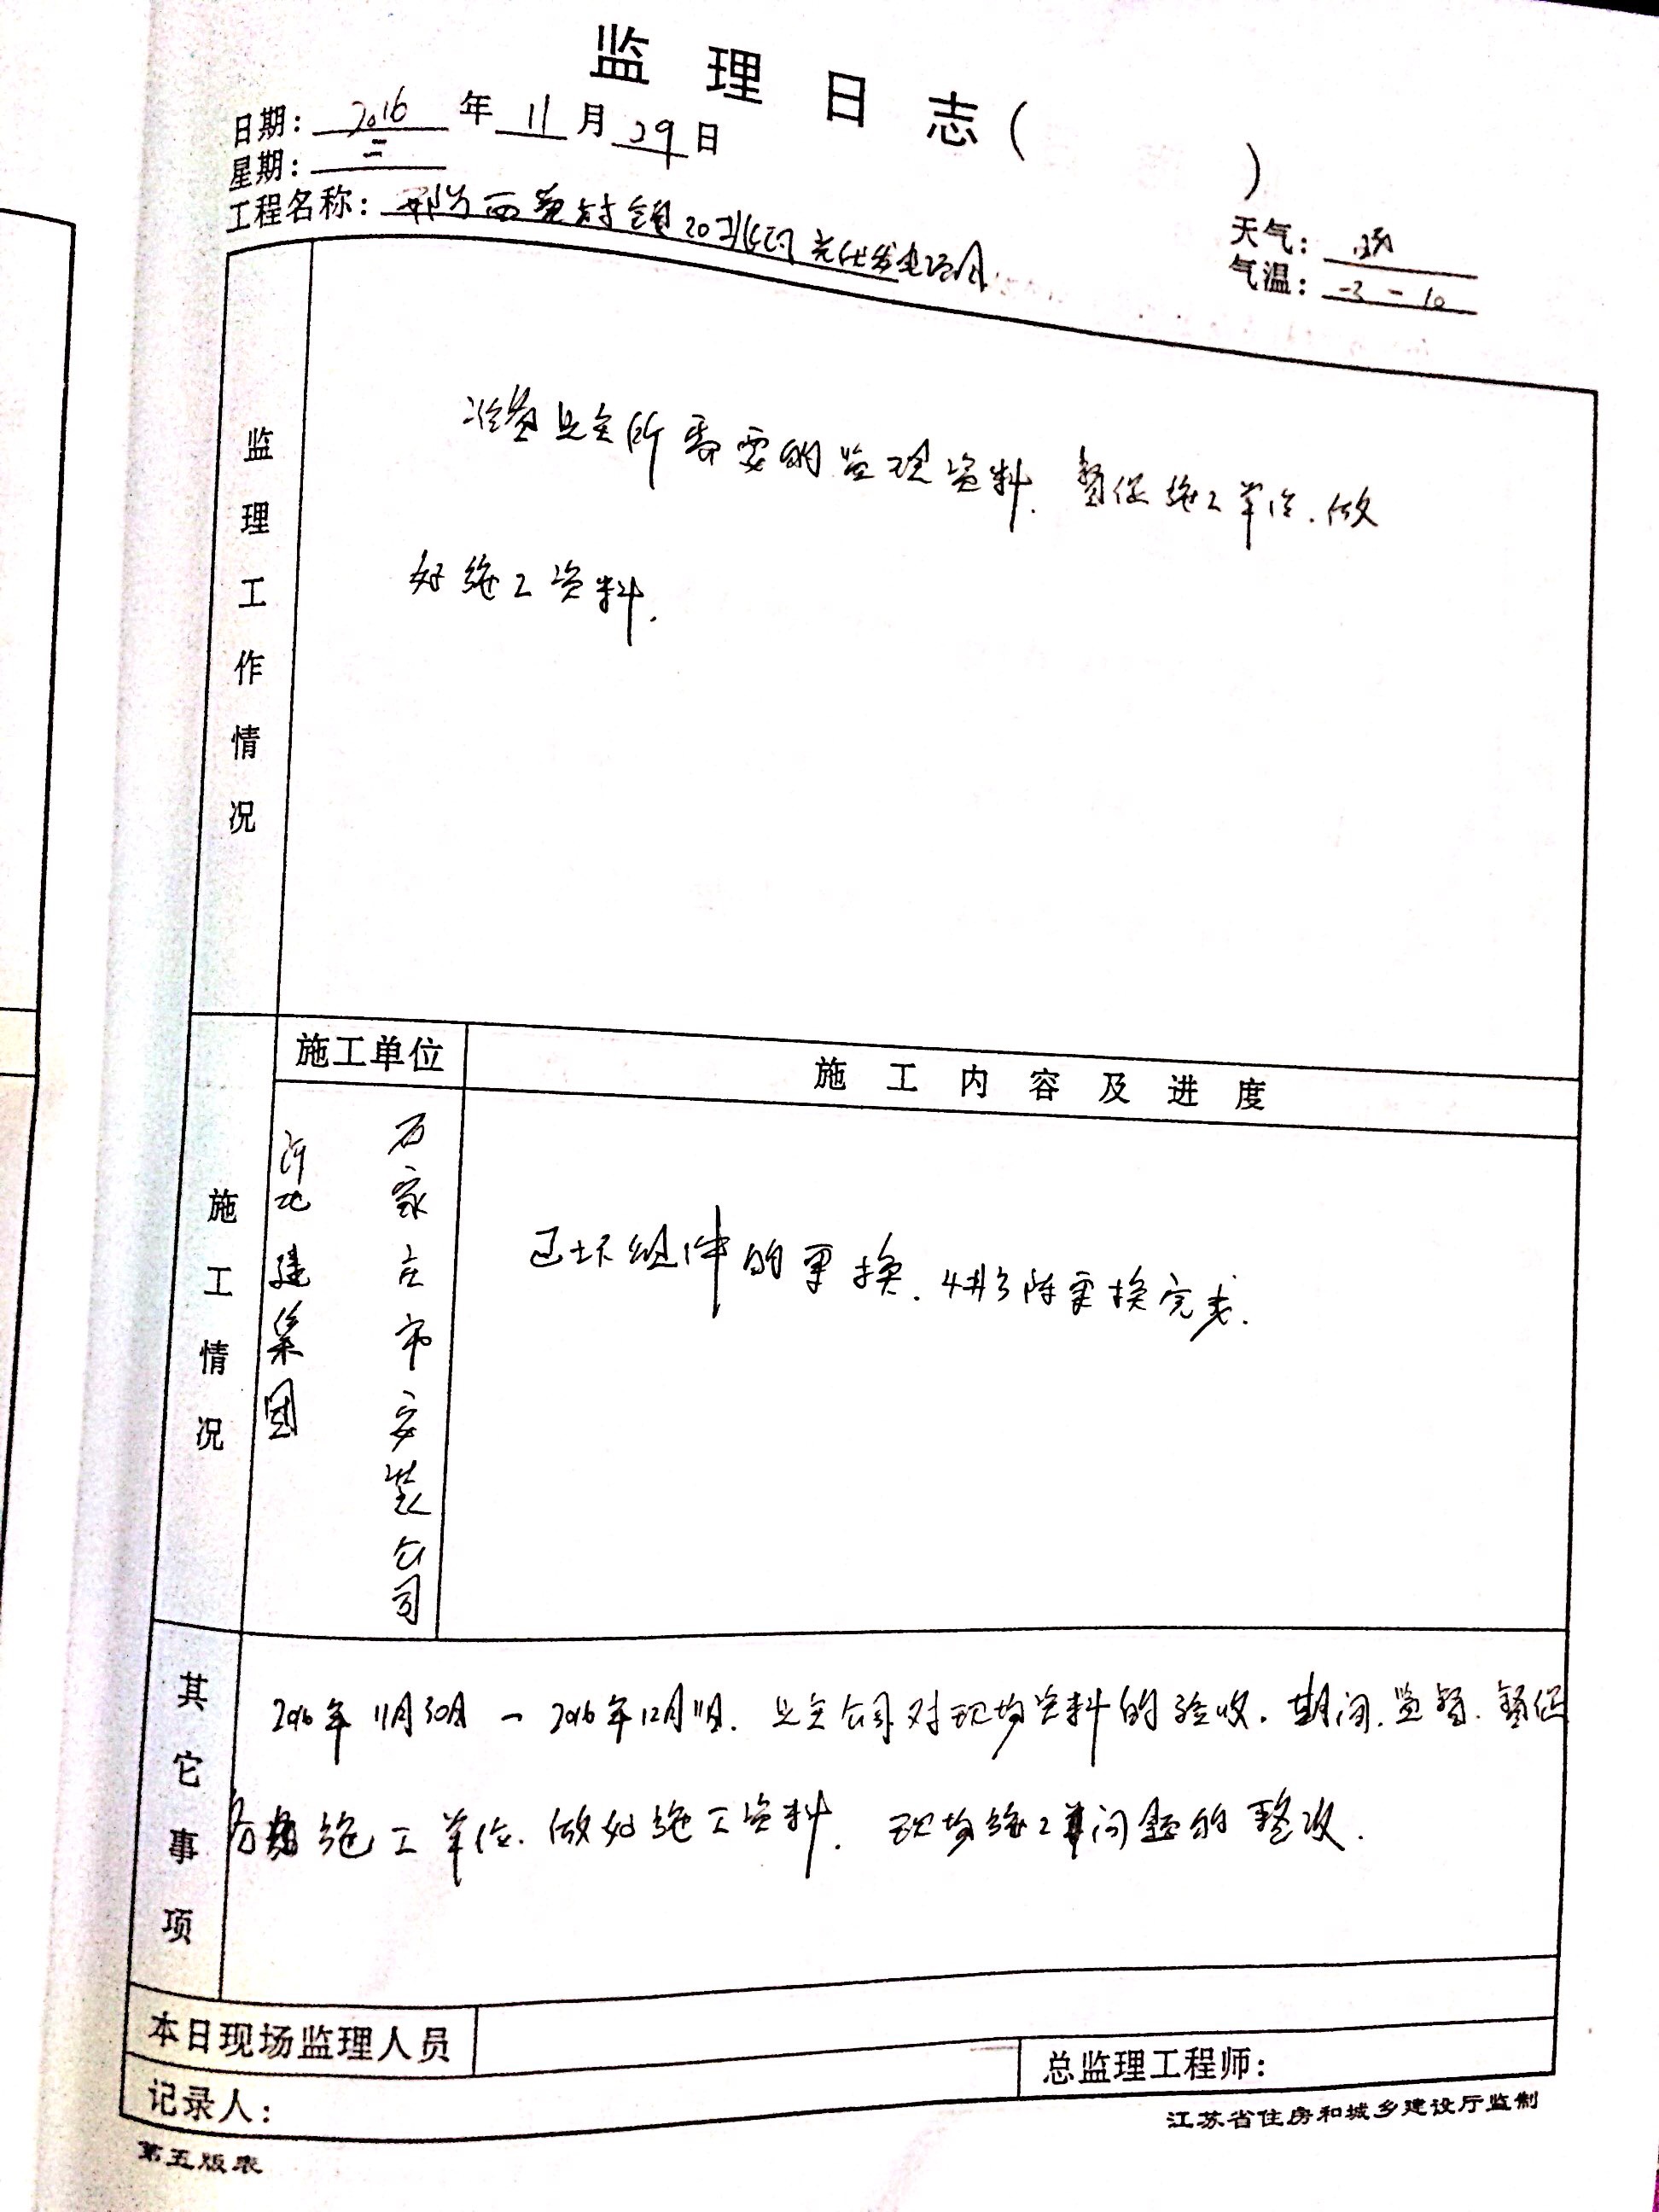 监理日志（ ）
日期：2016年11月29日
星期：二
工程名称： 西 村镇20兆瓦光伏发电项目
天气：晴
气温：-3-10
监理工作情况
准备业主所需要的监理资料．督促施工单位．做
好施工资料．
施工情况
施工单位
施工内容及进度
河北建集团
石家庄市安装公司
已坏组件的更换．4#方阵更换完成．
其它事项
2016年11月30日－2016年12月11日．业主公司对现场资料的验收．期间．监督．督促
各 施工单位．做好施工资料．现场施工 问题的整改．
本日现场监理人员
记录人：
总监理工程师：
江苏省住房和城乡建设厅监制
第五版表